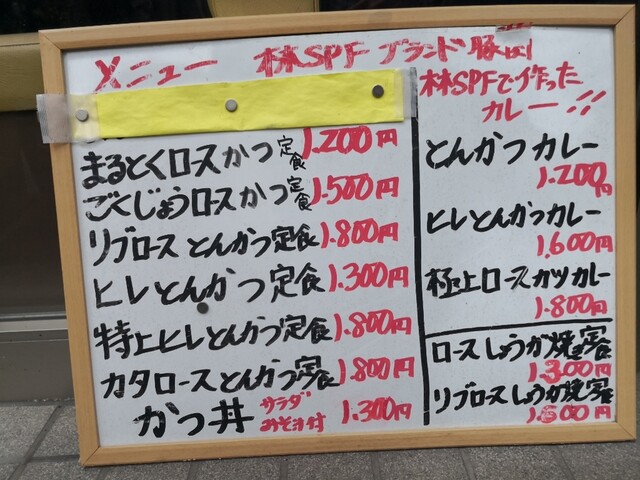 メニュー 林SPFブランド豚
まるとくロースかつ定食 1.200円
ごくじょうロースかつ定食 1.500円
リブロースとんかつ定食 1.800円
ヒレとんかつ定食 1.300円
特上ヒレとんかつ定食 1.800円
カタロースとんかつ定食 1.800円
かつ丼 サラダみそ汁付 1.300円
林SPFで作った
カレー!!
とんかつカレー
1.200円
ヒレとんかつカレー
1.600円
極上ロースカツカレー
1.800円
ロースしょうが焼き定食
1.300円
リブロースしょうが焼定食
1.800円